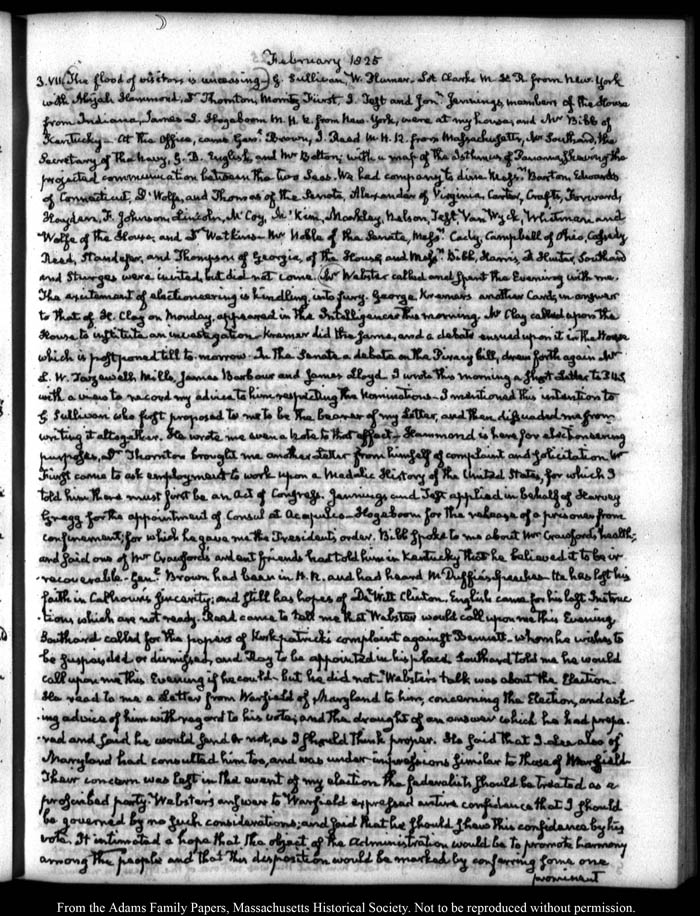 February 1825
3. VII. The flood of visitors is unceasing. G. Sullivan, W. Plumer. Lot Clarke M. H. R. from New-York
with Abijah Hammond, Dr Thornton, Moritz Fürst, J. Test and Jonn. Jennings, members of the House
from Indiana, James L. Hogeboom M. H. R. from New-York, were at my house, and Mr Bibb of
Kentucky. At the Office, came Genl. Brown, J. Reed M. H. R. from Massachusetts, Mr Southard, the
Secretary of the Navy, G. B. English, and Mr Bolton, with a map of the Isthmus of Panama, shewing the
projected communication between the two Seas. We had company to dine Messrs. Barton, Edwards
of Connecticut, D'Wolfe, and Thomas of the Senate, Alexander of Virginia, Carter, Crafts, Forward,
Hayden, F. Johnson, Lincoln, McCoy, McKim, Markley, Nelson, Test, Van Wyck, Whitman and
Wolfe of the House, and Dr Watkins. Mr Noble of the Senate, Messrs. Cady, Campbell of Ohio, Cassedy,
Reed, Standefer, and Thompson of Georgia, of the House, and Messrs. Bibb, Harris, Hunter, Southard
and Sturges were invited, but did not come. Mr Webster called and spent the Evening with me.
The excitement of electioneering is kindling into fury. George Kremer's another Card, in answer
to that of H. Clay on Monday, appeared in the Intelligencer this morning. Mr Clay called upon the
House to institute an investigation. Kremer did the same, and a debate ensued upon it in the House
which is postponed till to-morrow. In the Senate a debate on the Piracy bill, drew forth again Mr
L. W. Tazewell, Mills, James Barbour and James Lloyd. I wrote this morning a short Letter to
with a view to record my advice to him respecting the Nominations. I mentioned this intention to
G Sullivan who first proposed to me to be the bearer of my Letter, and then dissuaded me from
writing it altogether. He wrote me even a Note to that effect. Hammond is here for electioneering
purposes, Dr Thornton brought me another Letter from himself of complaint and solicitation. Mr
Furst came to ask employment to work upon a Medalic History of the United States, for which I
told him there must first be an Act of Congress. Jennings and Test applied in behalf of Harvey
Gregg for the appointment of Consul at Acapulco. Hogeboom for the release of a prisoner from
confinement; for which he gave me the President's order. Bibb spoke to me about Mr Crawford's health;
and said one of Mr Crawford's ardent friends had told him in Kentucky that he believed it to be ir-
-recoverable. Genl. Brown had been in H. R. and had heard McDuffie's Speeches. He has lost his
faith in Calhoun's sincerity; and still has hopes of De Witt Clinton. English came for his last Instruc
-tions which are not ready. Reed came to tell me that Webster would call upon me this Evening
Southard called for the papers of Kirkpatrick's complaint against Bennett, whom he wishes to
be suspended or dismissed, and Ray to be appointed in his place. Southard told me he would
call upon me this Evening if he could, but he did not. Webster's talk was about the Election.
He read to me a Letter from Warfield of Maryland to him, concerning the Election, and ask-
-ing advice of him with regard to his vote; and the draught of an answer which he had prepa-
-red and said he would send or not, as I should think proper. He said that I. Lee also of
Maryland had consulted him too, and was under impressions similar to those of Warfield.
Their concern was lest in the event of my election the federalists should be treated as a
proscribed party. Webster's answer to Warfield expressed entire confidence that I should
be governed by no such considerations; and said that he should shew this confidence by his
vote. It intimated a hope that the object of the Administration would be to promote harmony
among the people and that this disposition would be marked by conferring some one
prominent
From the Adams Family Papers, Massachusetts Historical Society. Not to be reproduced without permission.